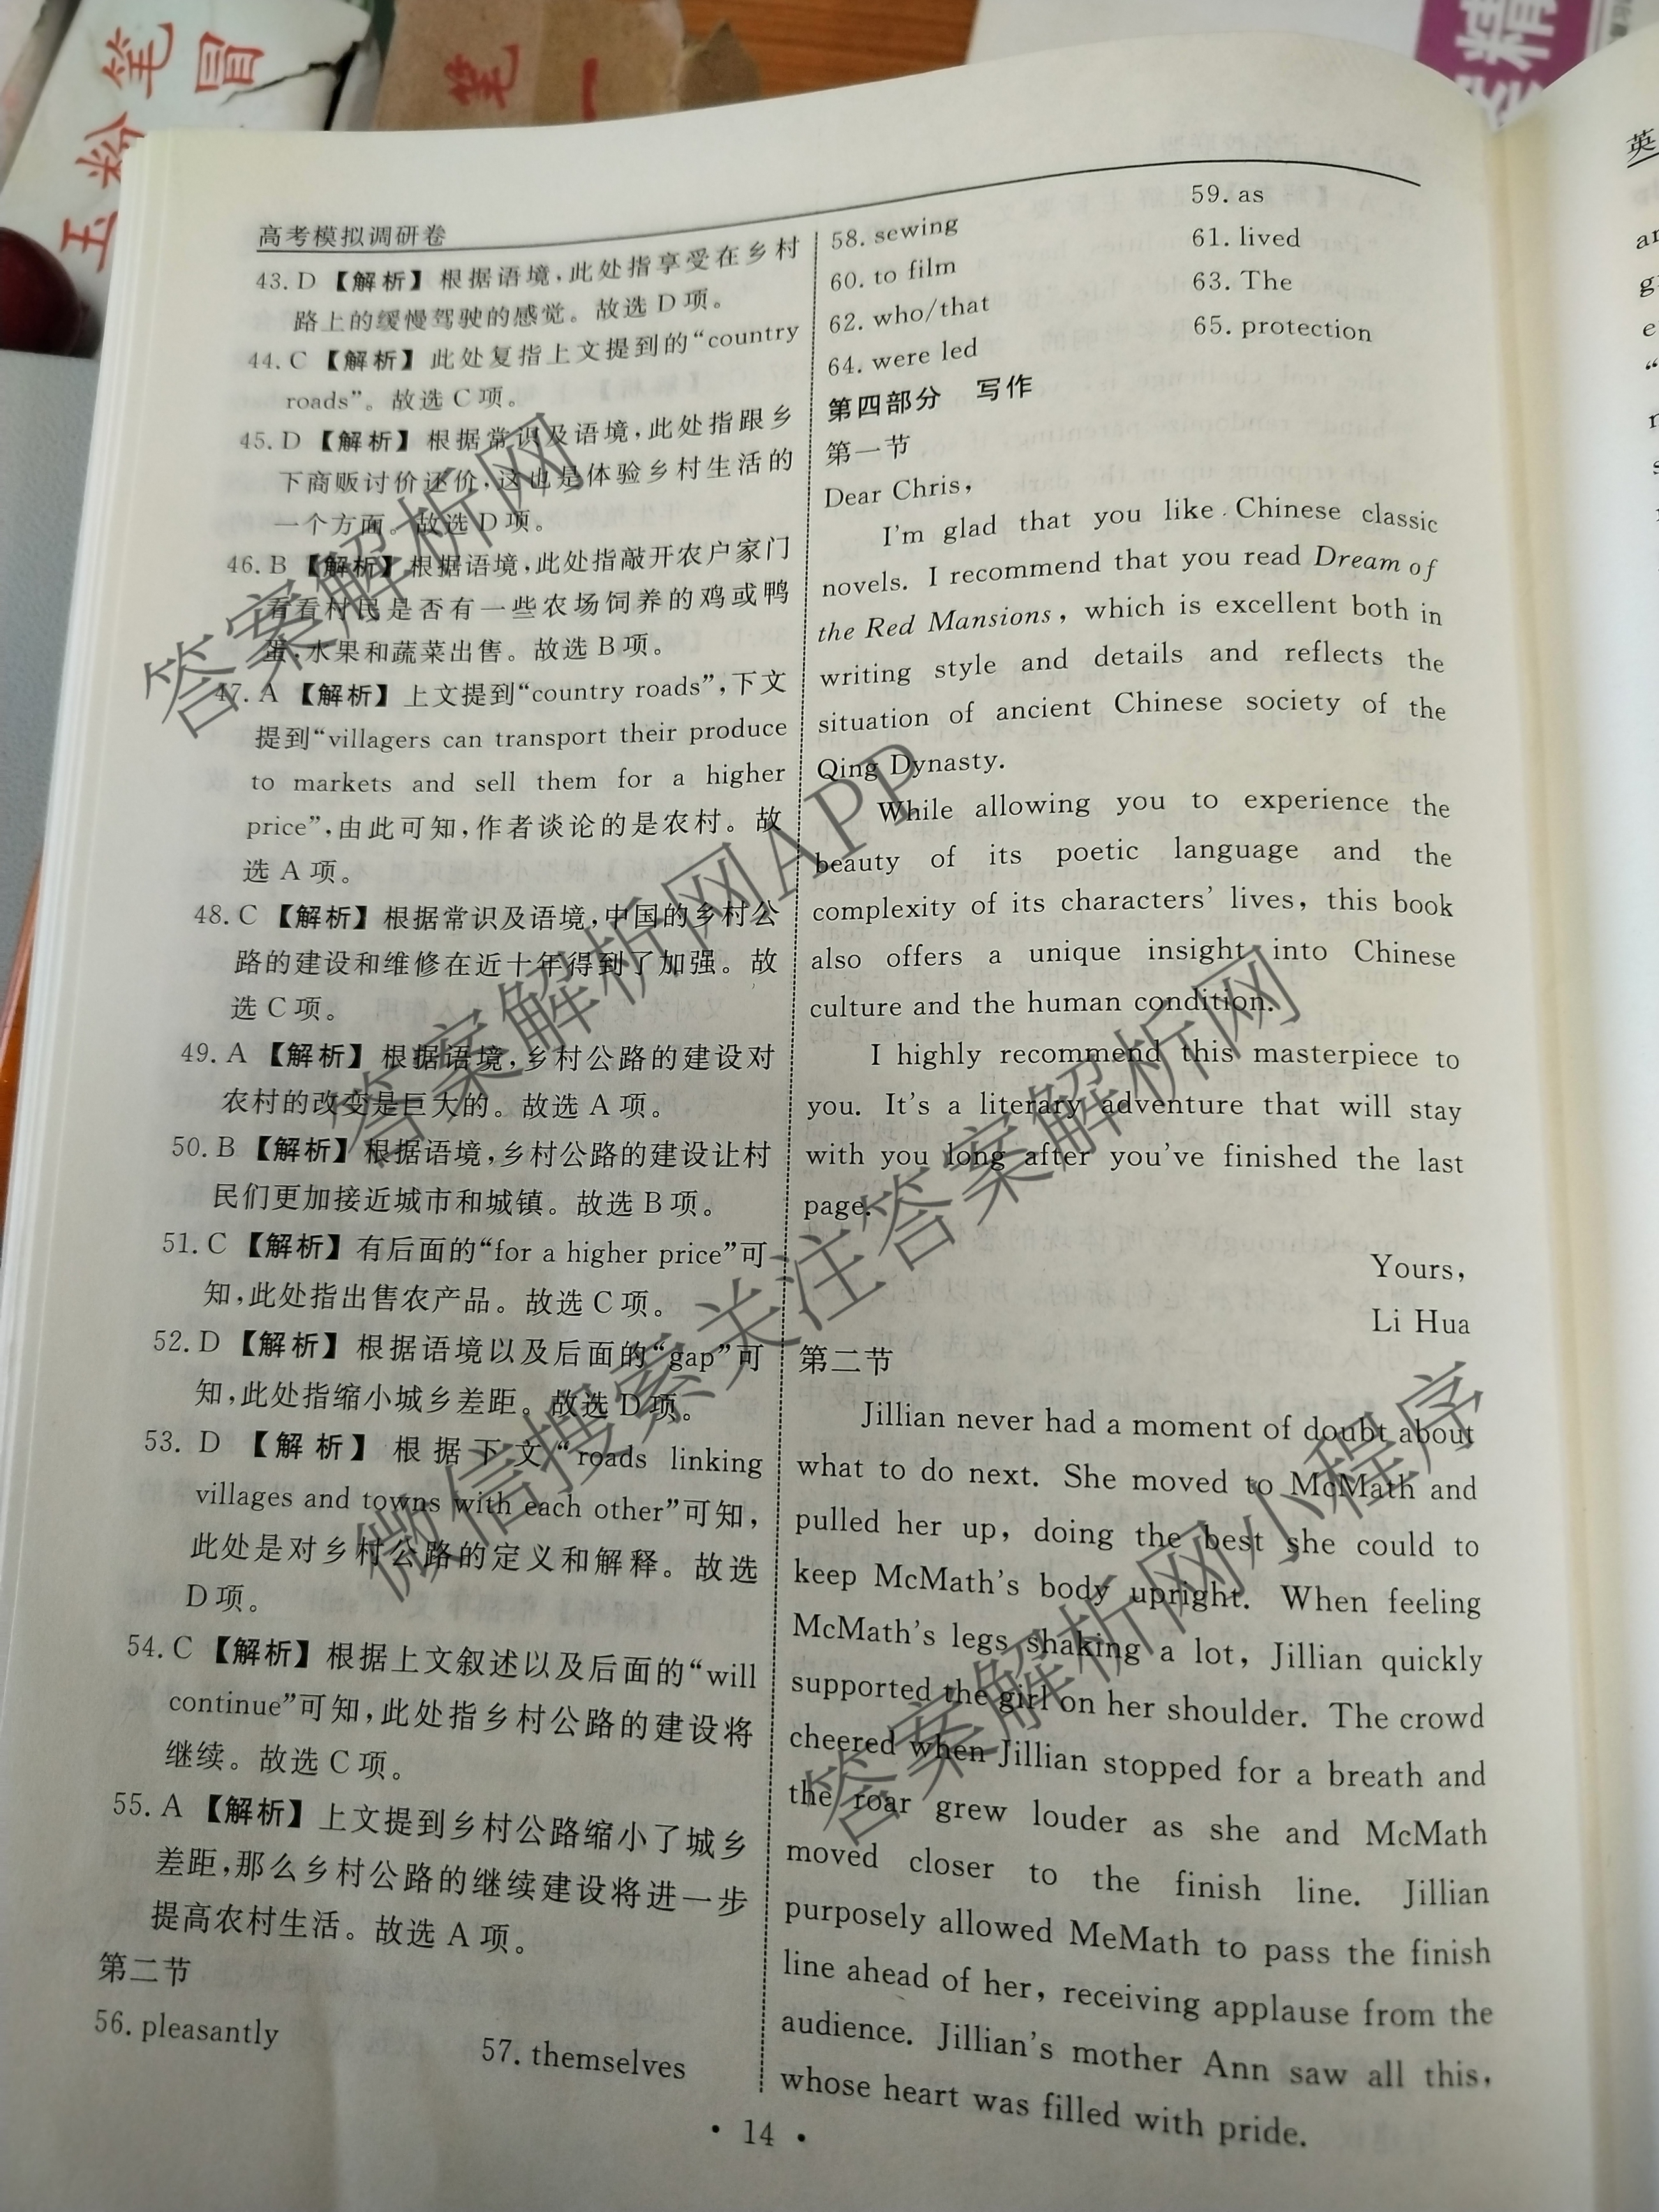 玉粉笔
冒
笔一
精
英
高考模拟调研卷
43. D 【解析】根据语境,此处指享受在乡村
路上的缓慢驾驶的感觉。故选 D 项。
44. C 【解析】此处复指上文提到的“country
roads”。故选 C 项。
45. D 【解析】根据常识及语境,此处指跟乡
下商贩讨价还价,这也是体验乡村生活的
一个方面。故选 D 项。
46. B 【解析】根据语境,此处指敲开农户家门
看看村民是否有一些农场饲养的鸡或鸭
蛋,水果和蔬菜出售。故选 B 项。
47. A 【解析】上文提到“country roads”,下文
提到“villagers can transport their produce
to markets and sell them for a higher
price”,由此可知,作者谈论的是农村。故
选 A 项。
48. C 【解析】根据常识及语境,中国的乡村公
路的建设和维修在近十年得到了加强。故
选 C 项。
49. A 【解析】根据语境,乡村公路的建设对
农村的改变是巨大的。故选 A 项。
50. B 【解析】根据语境,乡村公路的建设让村
民们更加接近城市和城镇。故选 B 项。
51. C 【解析】有后面的“for a higher price”可
知,此处指出售农产品。故选 C 项。
52. D 【解析】根据语境以及后面的“gap”可
知,此处指缩小城乡差距。故选 D 项。
53. D 【解析】根据下文“roads linking
villages and towns with each other”可知,
此处是对乡村公路的定义和解释。故选
D 项。
54. C 【解析】根据上文叙述以及后面的“will
continue”可知,此处指乡村公路的建设将
继续。故选 C 项。
55. A 【解析】上文提到乡村公路缩小了城乡
差距,那么乡村公路的继续建设将进一步
提高农村生活。故选 A 项。
第二节
56. pleasantly 57. themselves
58. sewing 59. as
60. to film 61. lived
62. who/that 63. The
64. were led 65. protection
第四部分 写作
第一节
Dear Chris,
I'm glad that you like Chinese classic
novels. I recommend that you read Dream of
the Red Mansions, which is excellent both in
writing style and details and reflects the
situation of ancient Chinese society of the
Qing Dynasty.
While allowing you to experience the
beauty of its poetic language and the
complexity of its characters' lives, this book
also offers a unique insight into Chinese
culture and the human condition.
I highly recommend this masterpiece to
you. It's a literary adventure that will stay
with you long after you've finished the last
page.
Yours,
Li Hua
第二节
Jillian never had a moment of doubt about
what to do next. She moved to McMath and
pulled her up, doing the best she could to
keep McMath's body upright. When feeling
McMath's legs shaking a lot, Jillian quickly
supported the girl on her shoulder. The crowd
cheered when Jillian stopped for a breath and
the roar grew louder as she and McMath
moved closer to the finish line. Jillian
purposely allowed MeMath to pass the finish
line ahead of her, receiving applause from the
audience. Jillian's mother Ann saw all this,
whose heart was filled with pride.
• 14 •
答案解析网
答案解析网APP
微信搜索关注答案解析网
答案解析网小程序